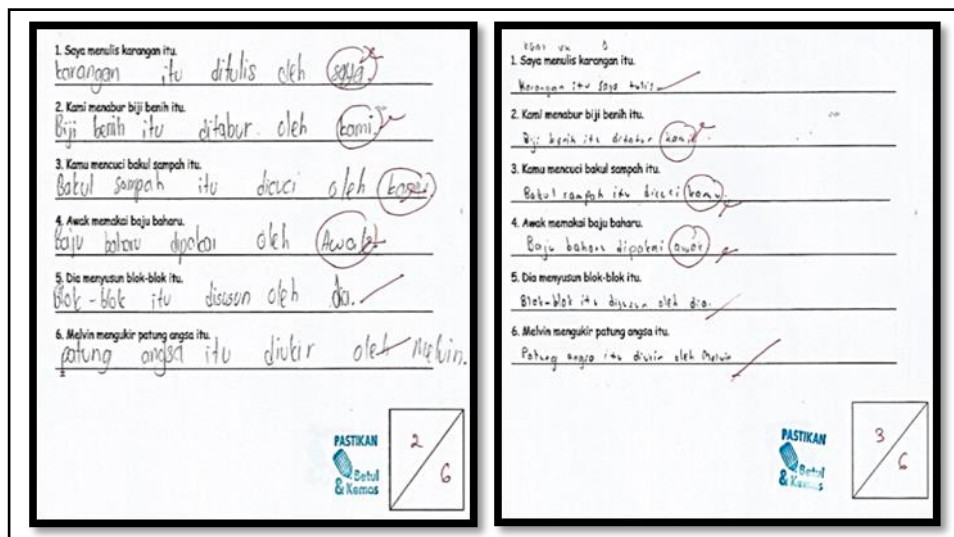 1. Saya menulis karangan itu.
karangan itu ditulis oleh saya.
2. Kami menabur biji benih itu.
Biji benih itu ditabur oleh kami.
3. Kamu mencuci bakul sampah itu.
Bakul sampah itu dicuci oleh kamu.
4. Awak memakai baju baharu.
Baju baharu dipakai oleh Awak.
5. Dia menyusun blok-blok itu.
Blok-blok itu disusun oleh dia.
6. Melvin mengukir patung angsa itu.
patung angsa itu diukir oleh Melvin.
PASTIKAN
Betul
& Kemas
2
6
1. Saya menulis karangan itu.
Karangan itu saya tulis.
2. Kami menabur biji benih itu.
Biji benih itu ditabur kami.
3. Kamu mencuci bakul sampah itu.
Bakul sampah itu dicuci kamu.
4. Awak memakai baju baharu.
Baju baharu dipakai awak
5. Dia menyusun blok-blok itu.
Blok-blok itu disusun oleh dia.
6. Melvin mengukir patung angsa itu.
Patung angsa itu diukir oleh Melvin
PASTIKAN
Betul
& Kemas
3
6